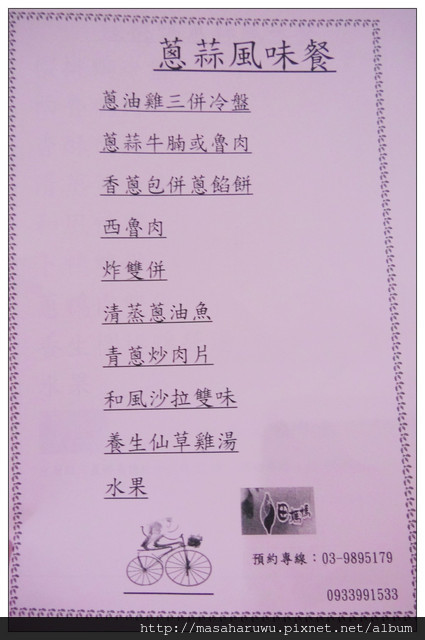 蔥蒜風味餐
蔥油雞三併冷盤
蔥蒜牛腩或魯肉
香蔥包併蔥餡餅
西魯肉
炸雙併
清蒸蔥油魚
青蔥炒肉片
和風沙拉雙味
養生仙草雞湯
水果
預約專線：03-9895179
0933991533
http://masaharuwu.pixnet.net/album